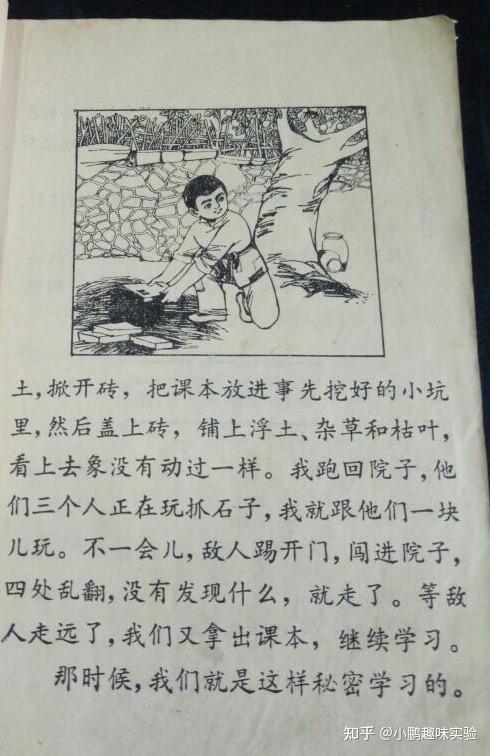 土,掀开砖，把课本放进事先挖好的小坑
里,然后盖上砖，铺上浮土、杂草和枯叶,
看上去象没有动过一样。我跑回院子,他
们三个人正在玩抓石子,我就跟他们一块
儿玩。不一会儿,敌人踢开门,闯进院子,
四处乱翻,没有发现什么，就走了。等敌
人走远了,我们又拿出课本，继续学习。
那时候,我们就是这样秘密学习的。
知乎 @小鹏趣味实验